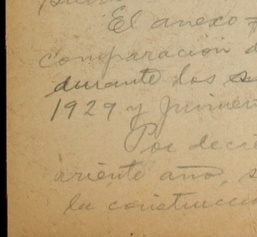 El anexo
comparación d
durante los
1929 y primer
Por deci
ariente año, s
la construcci